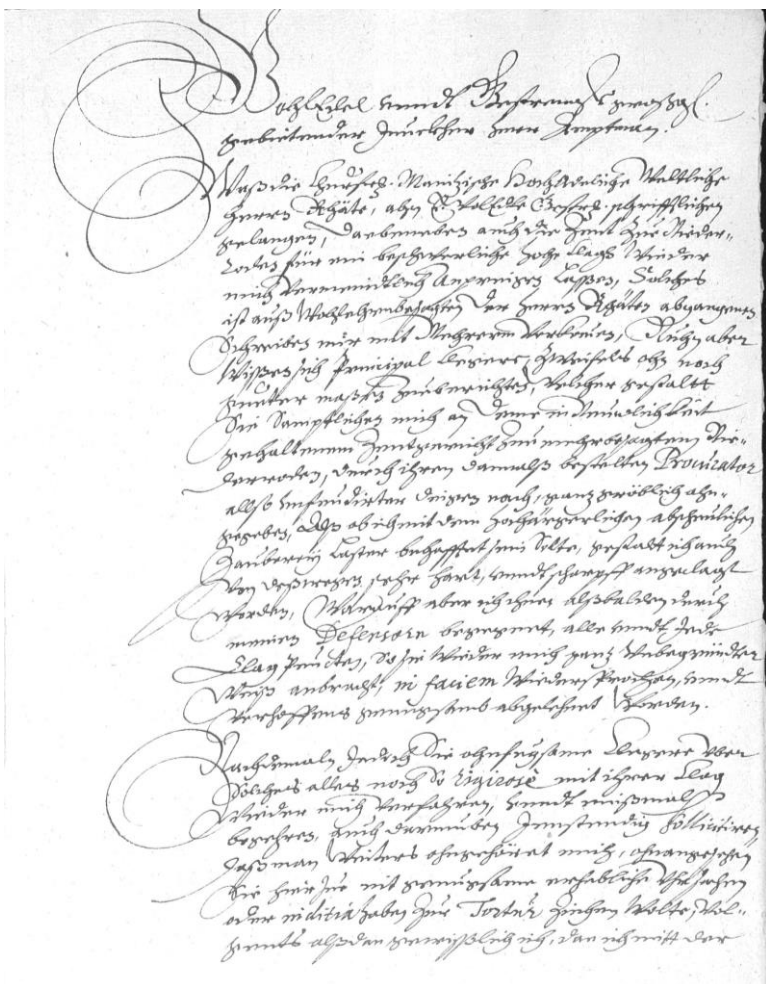 WohlEdel unndt Gestrenng, großg.
gebietender Junckher Herr Amptman.
Waß die Churfrl. Maintzische HochAdeliche Weltliche
Herrn Rhäte, ahn E. WolEdle Gestr. schrifftlichen
gelangen, darbeneben auch die Zent zue Nieder-
roden für ein beschwerliche hohe Clag wieder
mich vermeindtlich Lassen, Solches
ist auß Wohlehrenbesagten der Herrn Rhäten abgangenen
Schreiben mir mit Mehrerm aber
Wißen sich Principal Clegere, Zweifels ohn noch
guetter maßen zueberichten, welcher gestaltt
Sie Sämptlichen mich an deme in Neuwlichkeit
gehaltenem Zentgericht zue mehrbesagtem Nie-
derroden, durch ihren damalß bestelten Procurator
allß dingen nach, gantz gröblich ahn-
gegeben, Alß ob ich mit dem hochärgerlichen abscheulichen
Zauberey Laster behafftet sein Solte, gestalt ich auch
von deßwegen sehr hart, unndt scharpff angeclagt
worden, Warauff aber ich ihnen alßbalden durch
meinen Defensorn begegnet, alle unndt Jede
Clag Puncten, So sie wieder mich gantz Unbegründter
Weiß anbracht, in faciem Wiedersprochen, unndt
verhoffens genugsamb abgelehnet worden.
Nachdemaln Jedoch Sie ohnfugsame Clegere über
Solches alles noch So rigirosè mit ihrer Clag
Wieder mich verfahren, unndt
begehren, auch darneuben Innstendig sollicitiren,
daß man Weiters ohngehöret mich, ohnangesehen
Sie hierzue nit genugsame erhebliche Uhrsachen
oder inditia haben zur Tortur ziehen Wolte, Vol-
gents alßdan gewißlich ich, der